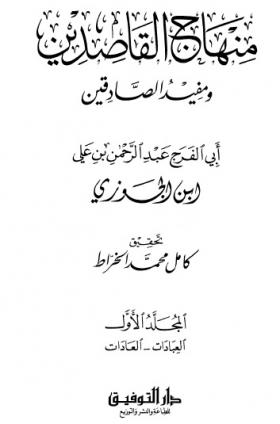 منهاج القاصدين
ومفيد الصادقين
أبي الفرج عبد الرحمن بن علي
ابن الجوزي
تحقيق
كامل محمد الخراط
المجلد الأول
العبادات - العادات
دار التوفيق
للطباعة والنشر والتوزيع